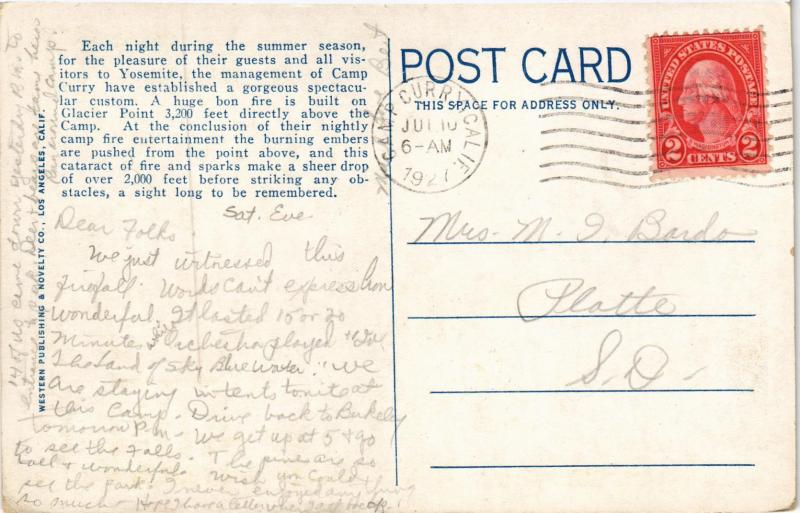 Each night during the summer season,
for the pleasure of their guests and all vis-
itors to Yosemite, the management of Camp
Curry have established a gorgeous spectacu-
lar custom. A huge bon fire is built on
Glacier Point 3,200 feet directly above the
Camp. At the conclusion of their nightly
camp fire entertainment the burning embers
are pushed from the point above, and this
cataract of fire and sparks make a sheer drop
of over 2,000 feet before striking any ob-
stacles, a sight long to be remembered.
WESTERN PUBLISHING & NOVELTY CO., LOS ANGELES, CALIF.
Sat. Eve
Dear Folks
We just witnessed this
firefall. Words can't express how
wonderful. It lasted 15 or 20
minutes while Orchestra played
The Land of Sky Blue Water". We
are staying in tents tonite at
this Camp. Drive back to Berkeley
tomorrow P.M. We get up at 5 & go
to see the Falls. The pines are so
tall & wonderful. Wish you could
see the park. I never enjoyed anything
so much - Hope I have a letter when I get back.
14 of us came down yesterday P.M. to
POST CARD
THIS SPACE FOR ADDRESS ONLY.
CAMP CURRY, CALIF.
JUL 10
6-AM
1927
UNITED STATES POSTAGE
2 CENTS 2
Mrs. M. I. Bardo
Platte
S.D.